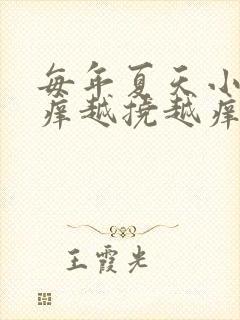 每年夏天小
痒越挠越痒
王霞光